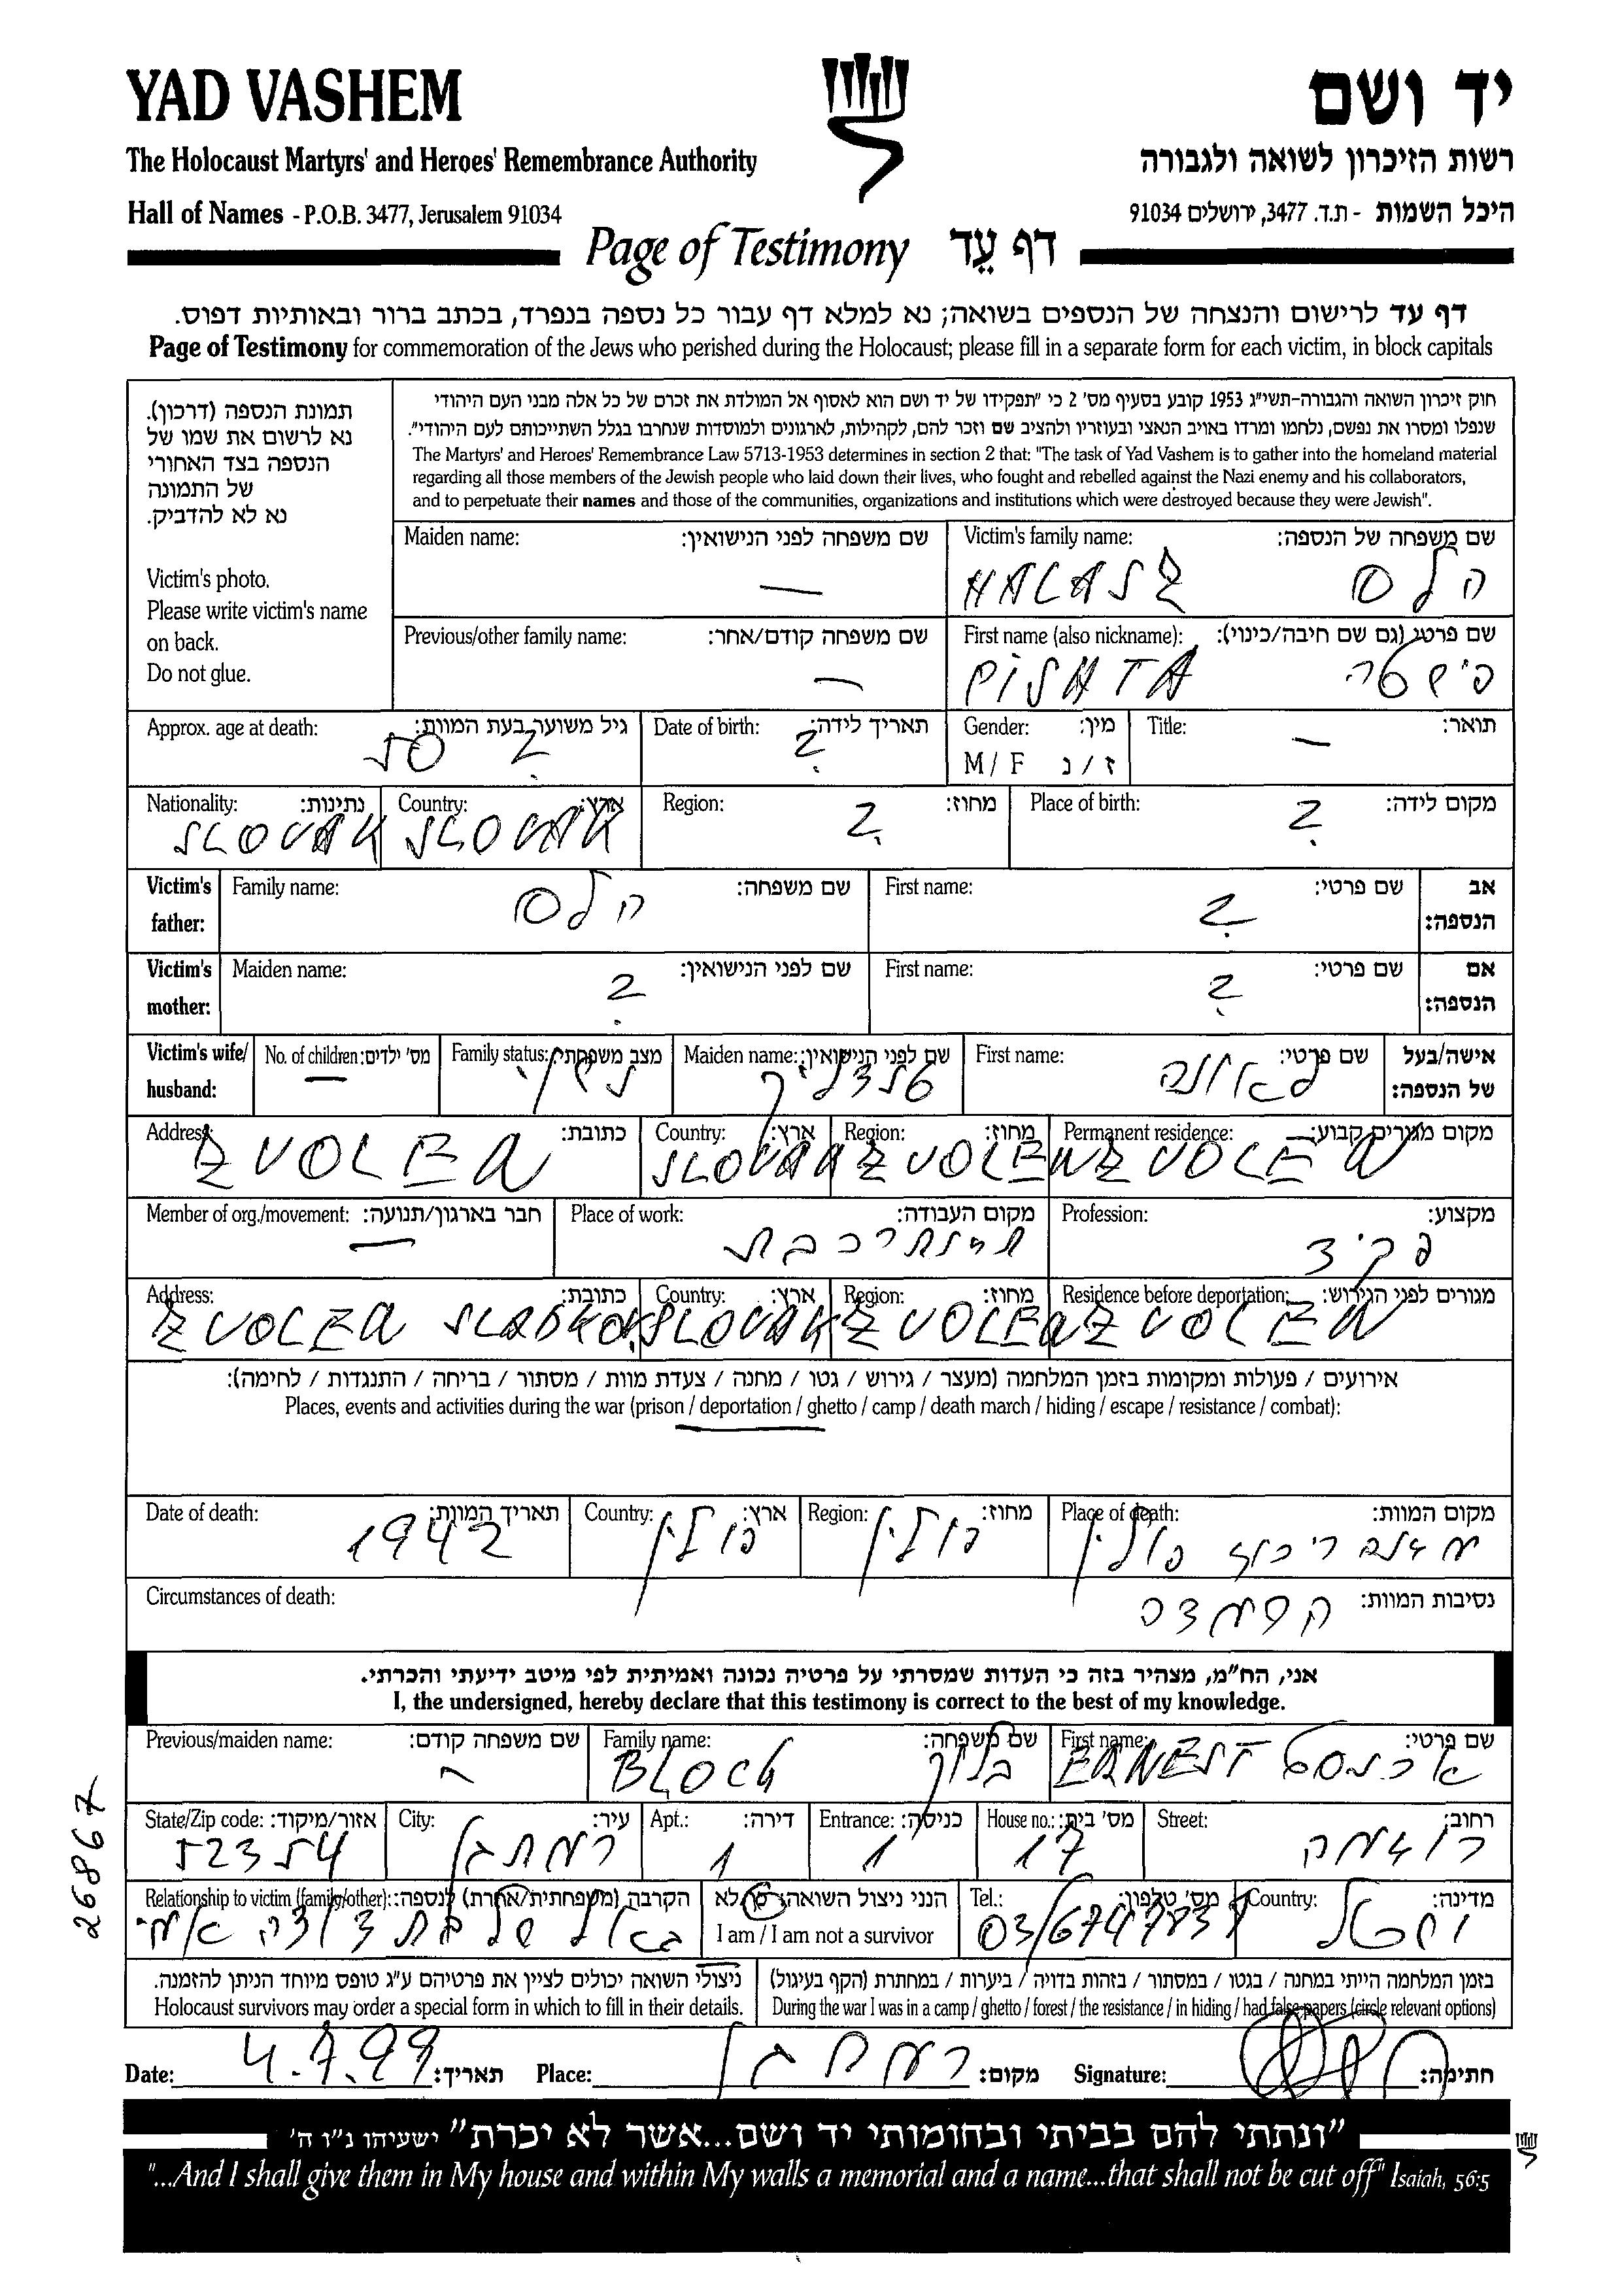 YAD VASHEM יד ושם
The Holocaust Martyrs' and Heroes' Remembrance Authority רשות הזיכרון לשואה ולגבורה
Hall of Names - P.O.B. 3477, Jerusalem 91034 היכל השמות - ת.ד. 3477, ירושלים 91034
Page of Testimony דף עֵד
דף עד לרישום והנצחה של הנספים בשואה; נא למלא דף עבור כל נספה בנפרד, בכתב ברור ובאותיות דפוס.
Page of Testimony for commemoration of the Jews who perished during the Holocaust; please fill in a separate form for each victim, in block capitals
תמונת הנספה (דרכון).
נא לרשום את שמו של
הנספה בצד האחורי
של התמונה
נא לא להדביק.
Victim's photo.
Please write victim's name
on back.
Do not glue.
חוק זיכרון השואה והגבורה-תשי"ג 1953 קובע בסעיף מס' 2 כי "תפקידו של יד ושם הוא לאסוף אל המולדת את זכרם של כל אלה מבני העם היהודי
שנפלו ומסרו את נפשם, נלחמו ומרדו באויב הנאצי ובעוזריו ולהציב שם וזכר להם, לקהילות, לארגונים ולמוסדות שנחרבו בגלל השתייכותם לעם היהודי".
The Martyrs' and Heroes' Remembrance Law 5713-1953 determines in section 2 that: "The task of Yad Vashem is to gather into the homeland material
regarding all those members of the Jewish people who laid down their lives, who fought and rebelled against the Nazi enemy and his collaborators,
and to perpetuate their names and those of the communities, organizations and institutions which were destroyed because they were Jewish".
Maiden name: שם משפחה לפני הנישואין: Victim's family name: שם משפחה של הנספה:
— HALASZ הלס
Previous/other family name: שם משפחה קודם/אחר: First name (also nickname): שם פרטי (גם שם חיבה/כינוי):
— PISHTA פישטה
Approx. age at death: גיל משוער בעת המוות: Date of birth: תאריך לידה: Gender: מין: Title: תואר:
50 ? ? M / F ז / נ —
Nationality: נתינות: Country: ארץ: Region: מחוז: Place of birth: מקום לידה:
SLOVAK SLOVAK ? ?
Victim's father: Family name: שם משפחה: First name: שם פרטי: אב הנספה:
הלס ?
Victim's mother: Maiden name: שם לפני הנישואין: First name: שם פרטי: אם הנספה:
? ?
Victim's wife/ husband: No. of children: מס' ילדים: Family status: מצב משפחתי: Maiden name: שם לפני הנישואין: First name: שם פרטי: אישה/בעל של הנספה:
— נשוי
Address: כתובת: Country: ארץ: Region: מחוז: Permanent residence: מקום מגורים קבוע:
ZVOLEN SLOVAK ZVOLEN ZVOLEN
Member of org./movement: חבר בארגון/תנועה: Place of work: מקום העבודה: Profession: מקצוע:
— פקיד
Address: כתובת: Country: ארץ: Region: מחוז: Residence before deportation: מגורים לפני הגירוש:
ZVOLEN SLOVAK ZVOLEN ZVOLEN
אירועים / פעולות ומקומות בזמן המלחמה (מעצר / גירוש / גטו / מחנה / צעדת מוות / מסתור / בריחה / התנגדות / לחימה):
Places, events and activities during the war (prison / deportation / ghetto / camp / death march / hiding / escape / resistance / combat):
Date of death: תאריך המוות: Country: ארץ: Region: מחוז: Place of death: מקום המוות:
1942 פולין פולין פולין
Circumstances of death: נסיבות המוות:
אני, הח"מ, מצהיר בזה כי העדות שמסרתי על פרטיה נכונה ואמיתית לפי מיטב ידיעתי והכרתי.
I, the undersigned, hereby declare that this testimony is correct to the best of my knowledge.
Previous/maiden name: שם משפחה קודם: Family name: שם משפחה: First name: שם פרטי:
— BLOCH בלוך ERNEST ארנסט
State/Zip code: אזור/מיקוד: City: עיר: Apt.: דירה: Entrance: כניסה: House no.: מס' בית: Street: רחוב:
52354 רמת גן 1 1 17
Relationship to victim (family/other): הקרבה (משפחתית/אחרת) לנספה: הנני ניצול השואה: כן/לא Tel.: מס' טלפון: Country: מדינה:
I am / I am not a survivor
בזמן המלחמה הייתי במחנה / בגטו / במסתור / בזהות בדויה / ביערות / במחתרת (הקף בעיגול)
During the war I was in a camp / ghetto / forest / the resistance / in hiding / had false papers (circle relevant options)
ניצולי השואה יכולים לציין את פרטיהם ע"ג טופס מיוחד הניתן להזמנה.
Holocaust survivors may order a special form in which to fill in their details.
Date: 4.7.99 תאריך: Place: רמת גן מקום: Signature: חתימה:
26867
"ונתתי להם בביתי ובחומותי יד ושם...אשר לא יכרת" ישעיהו נ"ו ה'
"...And I shall give them in My house and within My walls a memorial and a name...that shall not be cut off" Isaiah, 56:5